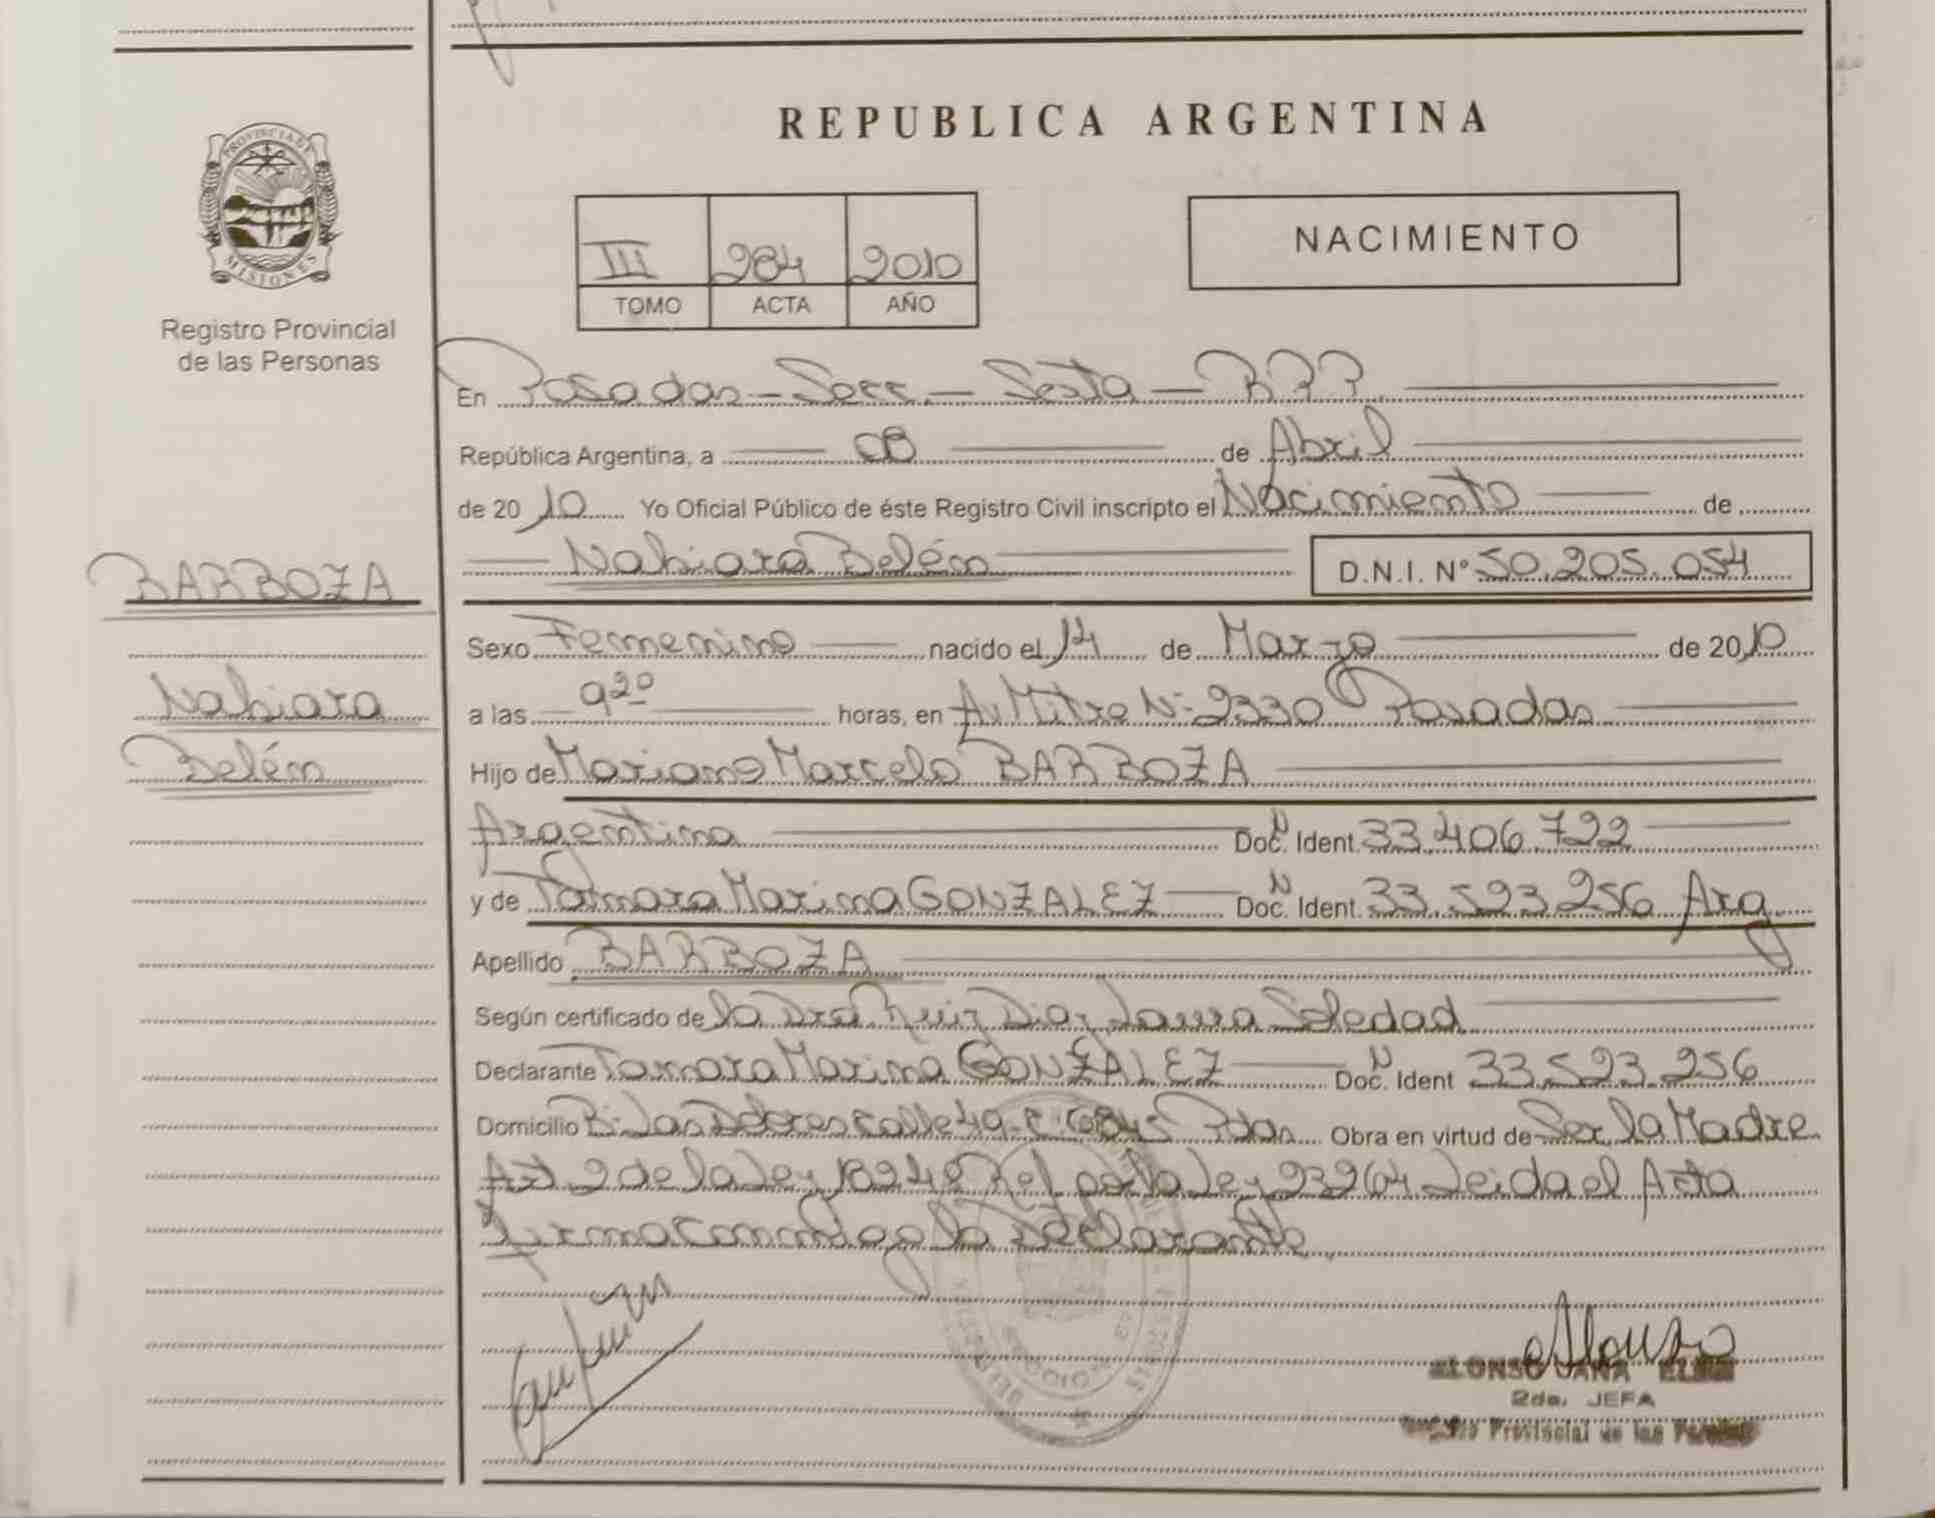 REPUBLICA ARGENTINA
PROVINCIA DE
MISIONES
Registro Provincial
de las Personas
III 284 2010
TOMO ACTA AÑO
NACIMIENTO
En Posadas - Secc. - Sexta - R.P.P.
República Argentina, a 08 de Abril
de 2010 Yo Oficial Público de éste Registro Civil inscripto el Nacimiento de
Nahiara Belém D.N.I. N° 50.205.054
BARBOZA
Nahiara
Belém
Sexo Femenino nacido el 14 de Marzo de 2010
a las 9 20 horas, en Av Mitre N: 2330 Posadas
Hijo de Mariano Marcelo BARBOZA
Argentina Doc. N Ident. 33.406.722
y de Tamara Marina GONZALEZ Doc. N Ident. 33.593.256 Arg.
Apellido BARBOZA
Según certificado de la Dra Ruiz Diaz Laura Soledad
Declarante Tamara Marina GONZALEZ Doc. N Ident 33.593.256
Domicilio B: Las Dolores calle 49 Pdas. Obra en virtud de Ser la Madre
Art. 2 de la Ley 18248 Ref. por la Ley 23264 Leida el Acta
firma conmigo la Declarante.
ALONSO ANA
2da. JEFA
Provincial de las Personas